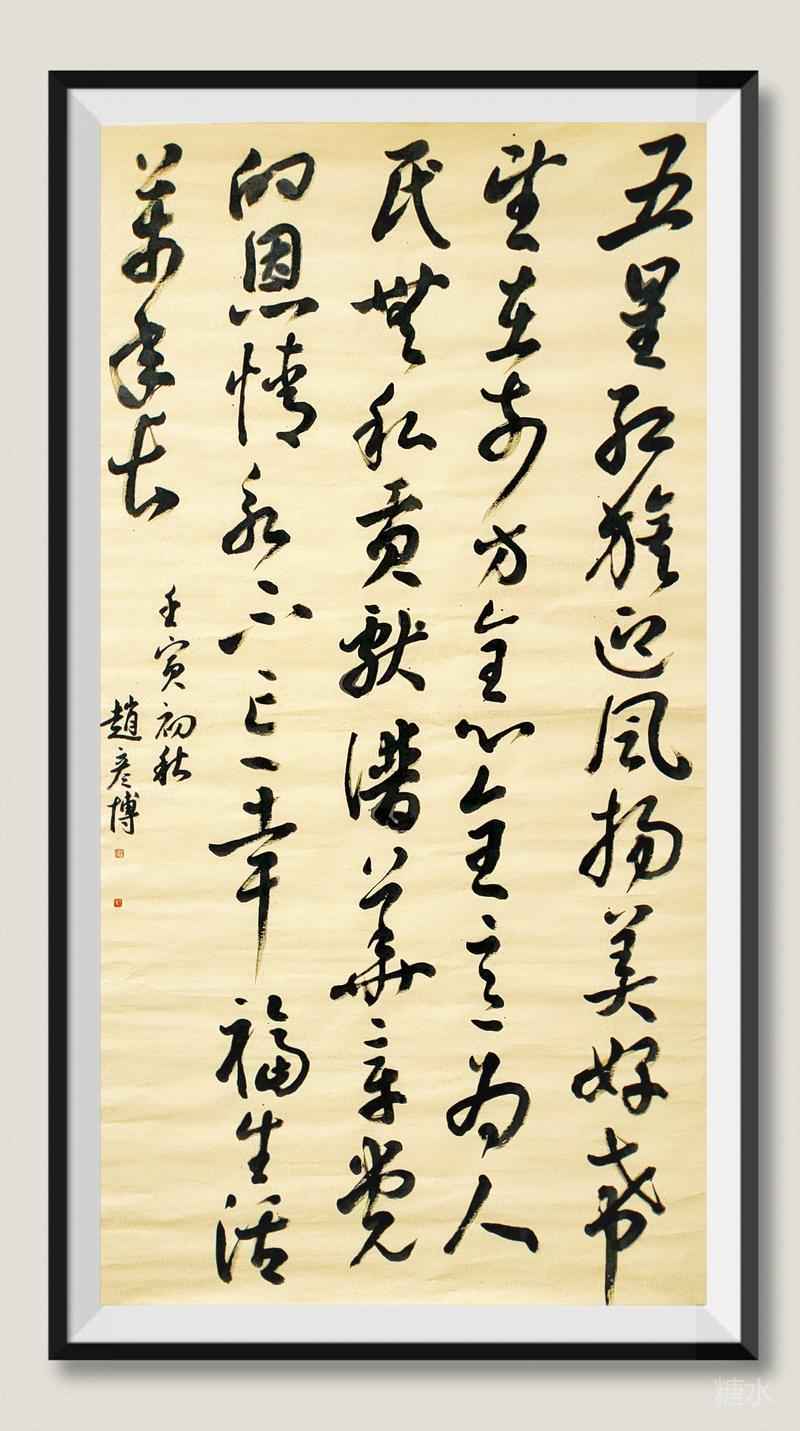 五星红旗迎风扬美好希
望在前方全心全意为人
民無私贡獻谱華章党
的恩情永不忘幸福生活
萬年长
壬寅初秋
趙彦博
糖水